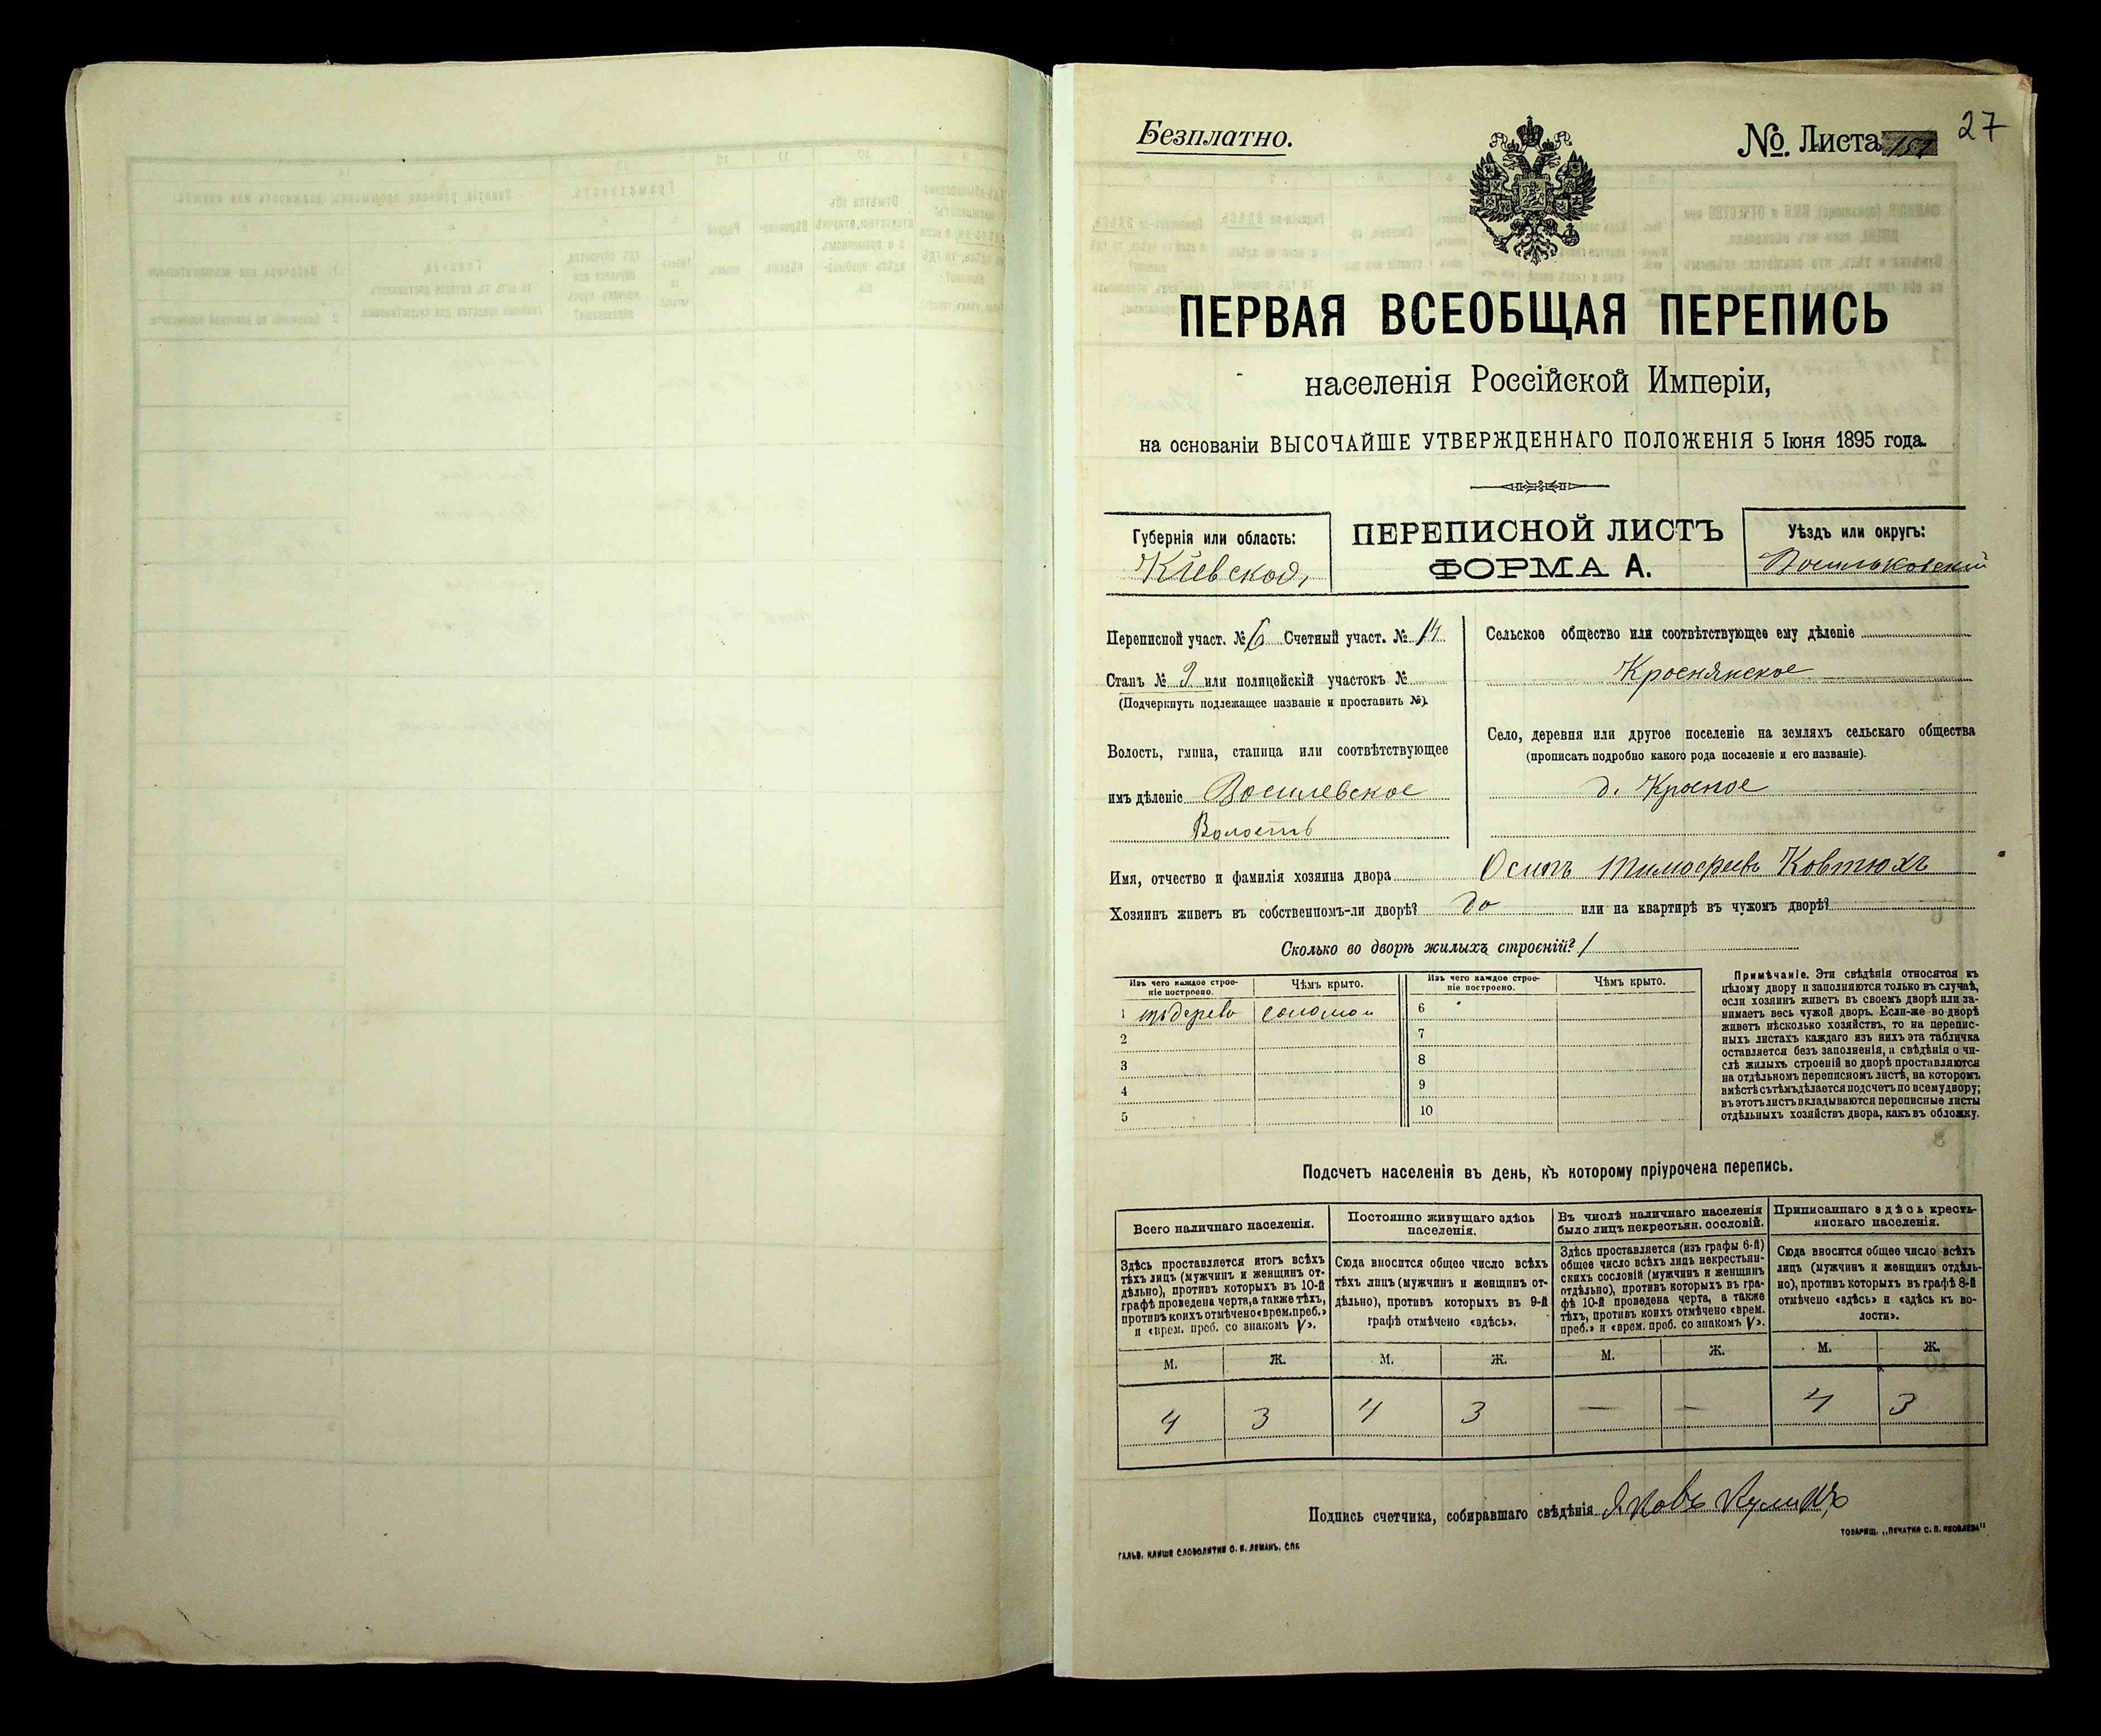 Безплатно.
№ Листа
27
ПЕРВАЯ ВСЕОБЩАЯ ПЕРЕПИСЬ
населенія Россійской Имперіи,
на основаніи ВЫСОЧАЙШЕ УТВЕРЖДЕННАГО ПОЛОЖЕНІЯ 5 Іюня 1895 года.
Губернія или область:
Кіевской,
ПЕРЕПИСНОЙ ЛИСТЪ
ФОРМА А.
Уѣздъ или округъ:
Васильковскій
Переписной участ. № 6 Счетный участ. № 14
Станъ № 3 или полицейскій участокъ №
(Подчеркнуть подлежащее названіе и проставить №).
Волость, гмина, станица или соотвѣтствующее
имъ дѣленіе Василевское
Волость
Сельское общество или соотвѣтствующее ему дѣленіе
Краснянское
Село, деревня или другое поселеніе на земляхъ сельскаго общества
(прописать подробно какого рода поселеніе и его названіе).
д. Красное
Имя, отчество и фамилія хозяина двора Осипъ Тимофеевъ Ковтюхъ
Хозяинъ живетъ въ собственномъ-ли дворѣ? да или на квартирѣ въ чужомъ дворѣ?
Сколько во дворѣ жилыхъ строеній? 1
Изъ чего каждое строе-
ніе построено.
Чѣмъ крыто.
Изъ чего каждое строе-
ніе построено.
Чѣмъ крыто.
1 изъ дерева соломои 6
2 7
3 8
4 9
5 10
Примѣчаніе. Эти свѣдѣнія относятся къ
цѣлому двору и заполняются только въ случаѣ,
если хозяинъ живетъ въ своемъ дворѣ или за-
нимаетъ весь чужой дворъ. Если-же во дворѣ
живетъ нѣсколько хозяйствъ, то на перепис-
ныхъ листахъ каждаго изъ нихъ эта табличка
оставляется безъ заполненія, а свѣдѣнія о чи-
слѣ жилыхъ строеній во дворѣ проставляются
на отдѣльномъ переписномъ листѣ, на которомъ
вмѣстѣ съ тѣмъ дѣлается подсчетъ по всему двору;
въ этотъ листъ вкладываются переписные листы
отдѣльныхъ хозяйствъ двора, какъ въ обложку.
Подсчетъ населенія въ день, къ которому пріурочена перепись.
Всего наличнаго населенія.
Здѣсь проставляется итогъ всѣхъ
тѣхъ лицъ (мужчинъ и женщинъ от-
дѣльно), противъ которыхъ въ 10-й
графѣ проведена черта, а также тѣхъ,
противъ коихъ отмѣчено «врем. преб.»
и «врем. преб. со знакомъ V».
Постоянно живущаго здѣсь
населенія.
Сюда вносится общее число всѣхъ
тѣхъ лицъ (мужчинъ и женщинъ от-
дѣльно), противъ которыхъ въ 9-й
графѣ отмѣчено «здѣсь».
Въ числѣ наличнаго населенія
было лицъ некрестьян. сословій.
Здѣсь проставляется (изъ графы 6-й)
общее число всѣхъ лицъ некрестьян-
скихъ сословій (мужчинъ и женщинъ
отдѣльно), противъ которыхъ въ гра-
фѣ 10-й проведена черта, а также
тѣхъ, противъ коихъ отмѣчено «врем.
преб.» и «врем. преб. со знакомъ V».
Приписаннаго здѣсь кресть-
янскаго населенія.
Сюда вносится общее число всѣхъ
лицъ (мужчинъ и женщинъ отдѣль-
но), противъ которыхъ въ графѣ 8-й
отмѣчено «здѣсь» и «здѣсь къ во-
лости».
М. Ж. М. Ж. М. Ж. М. Ж.
4 3 4 3 — — 4 3
Подпись счетчика, собиравшаго свѣдѣнія Яковъ
ГАЛЬВ. КЛИШЕ СЛОВОЛИТНИ О. И. ЛЕМАНЪ, СПБ
ТОВАРИЩ. „ПЕЧАТНЯ С. П. ЯКОВЛЕВА"